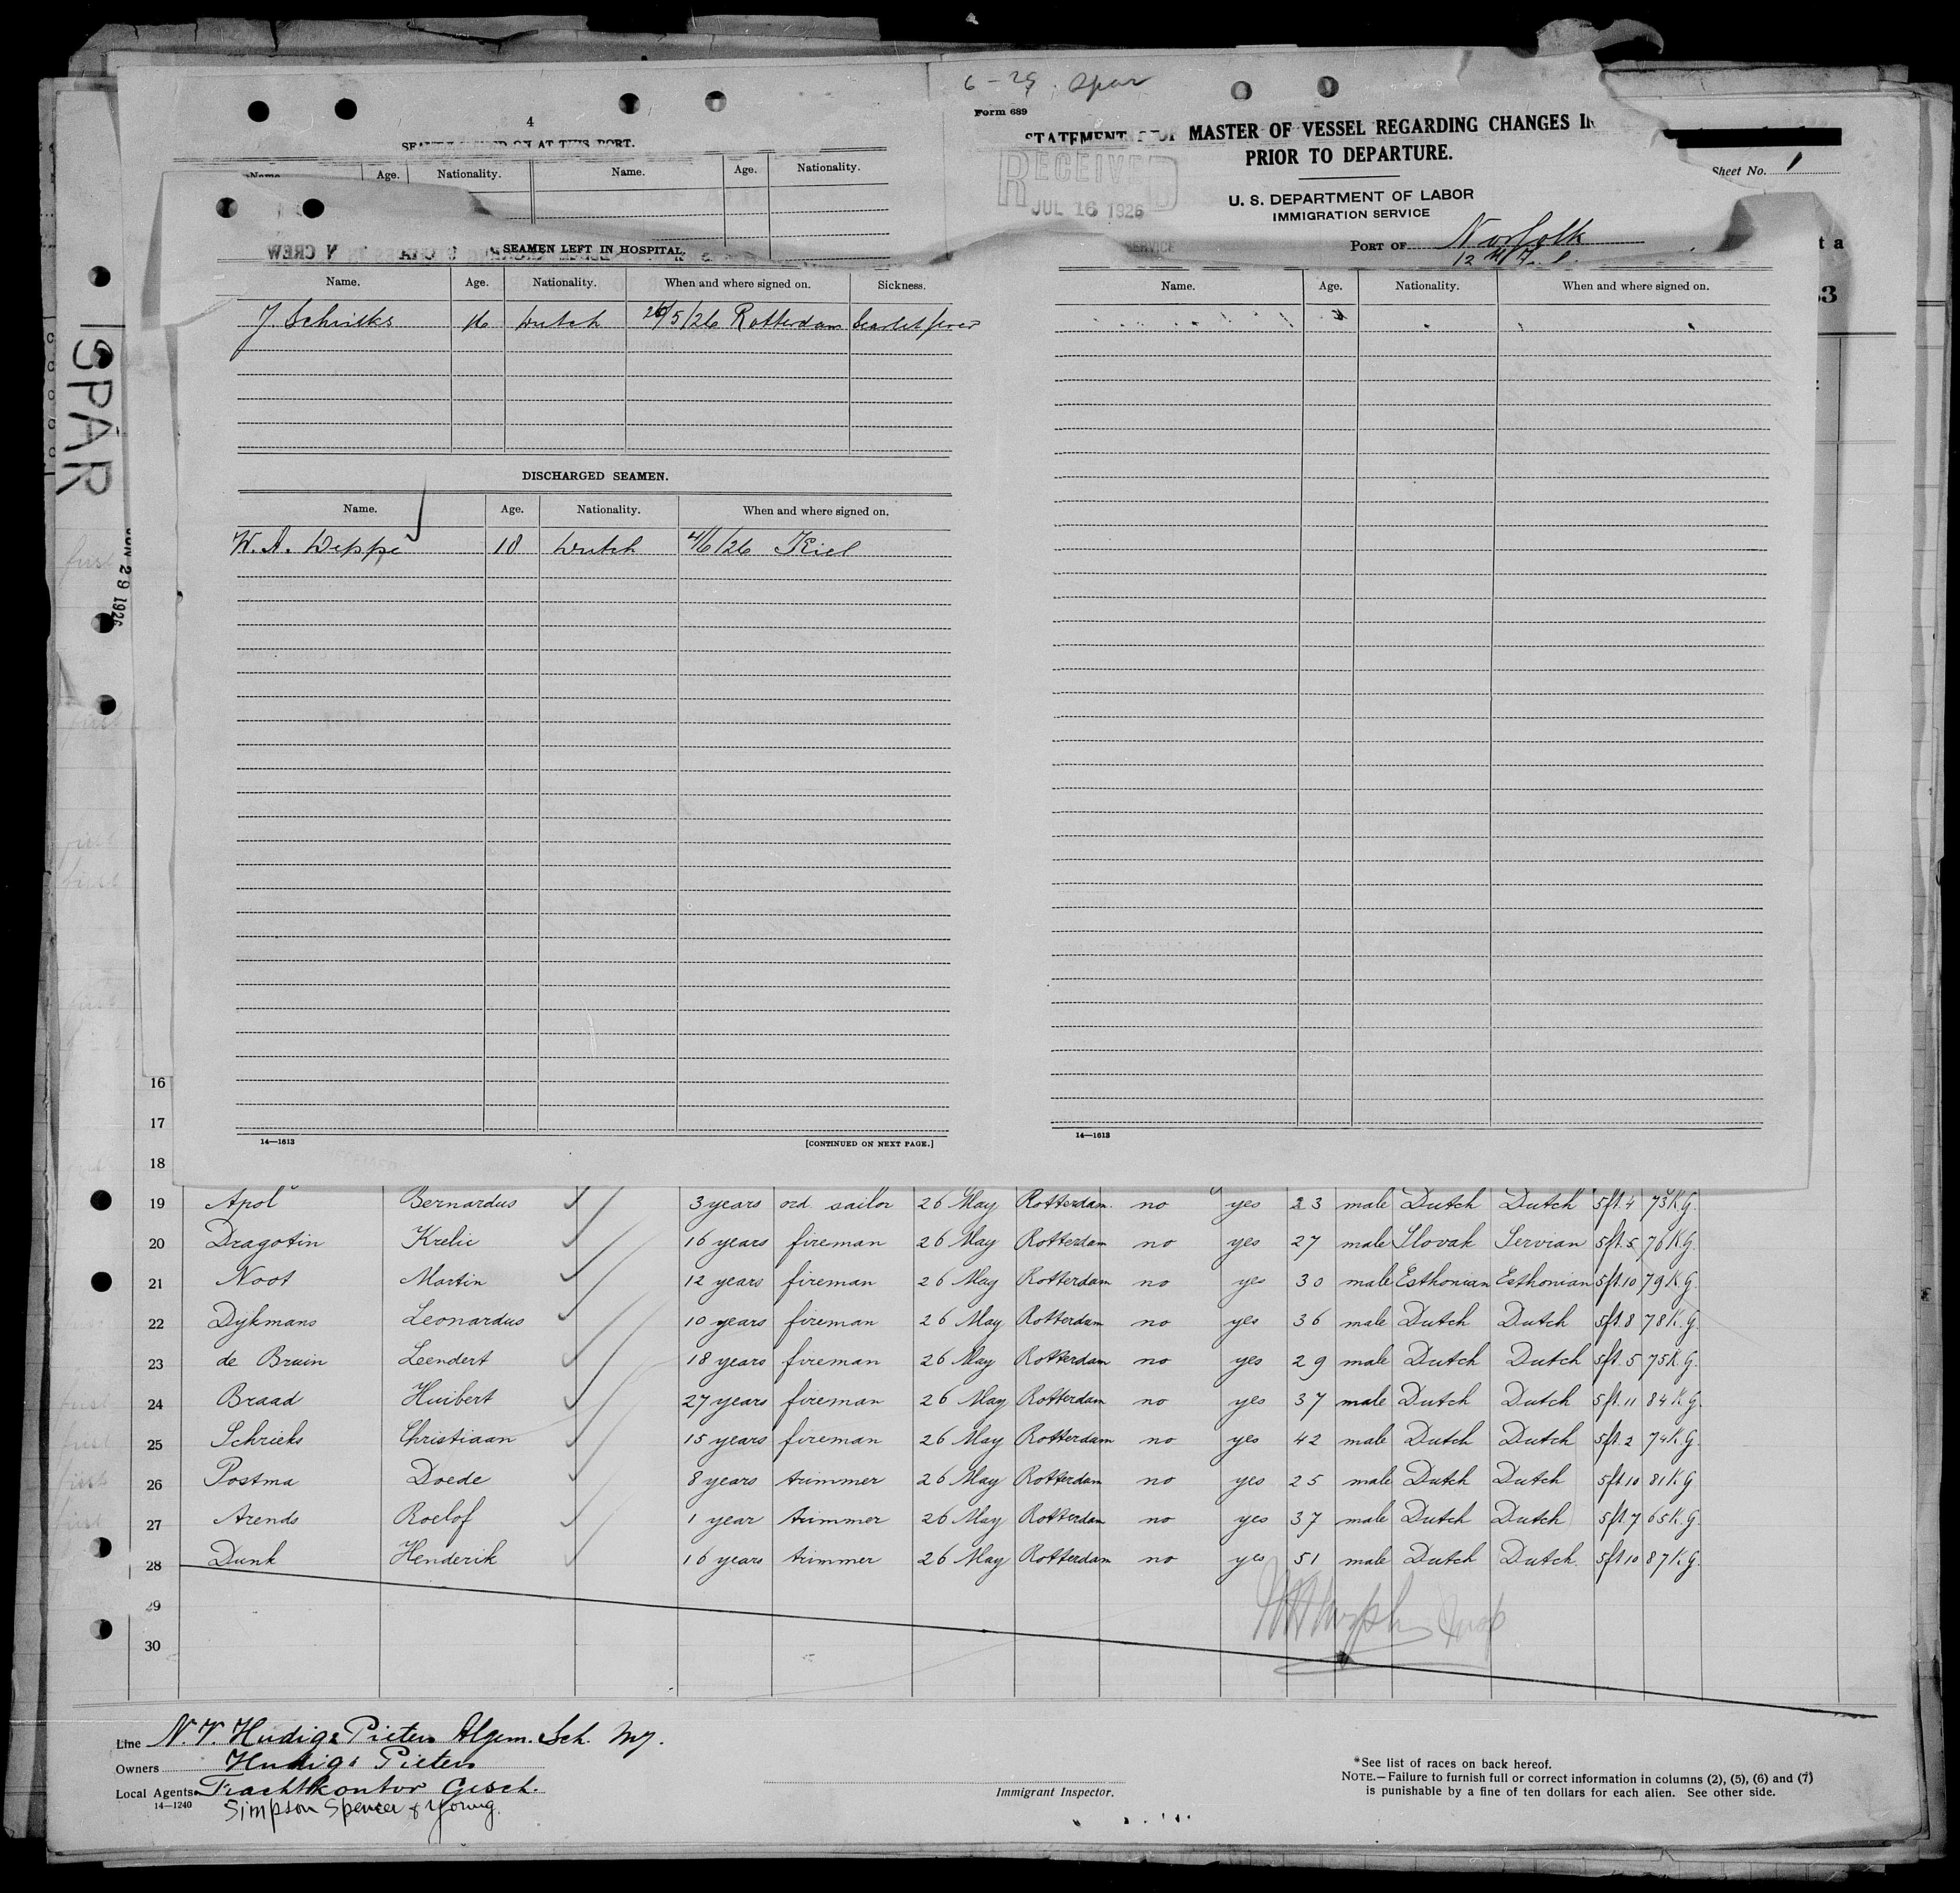 6-29. Spar
Form 689
4
STATEMENT OF MASTER OF VESSEL REGARDING CHANGES IN
PRIOR TO DEPARTURE.
SEAMEN SIGNED ON AT THIS PORT.
Name. Age. Nationality. Name. Age. Nationality.
RECEIVED
JUL 16 1926
U. S. DEPARTMENT OF LABOR
IMMIGRATION SERVICE
PORT OF Norfolk
Sheet No. 1
SPAR
JUN 29 1926
SEAMEN LEFT IN HOSPITAL.
Name. Age. Nationality. When and where signed on. Sickness.
16 Dutch 26/5/26 Rotterdam Scarlet fever
Name. Age. Nationality. When and where signed on.
DISCHARGED SEAMEN.
Name. Age. Nationality. When and where signed on.
W. A. Deppe 18 Dutch 4/6/26 Kiel
14—1613 [CONTINUED ON NEXT PAGE.]
14—1613
16
17
18
19 Apol Bernardus 3 years ord sailor 26 May Rotterdam. no yes 23 male Dutch Dutch 5ft.4 73K.G.
20 Dragotin Krelic 16 years fireman 26 May Rotterdam no yes 27 male Slovak Servian 5ft.5 76K.G.
21 Noot Martin 12 years fireman 26 May Rotterdam no yes 30 male Esthonian Esthonian 5ft.10 79K.G.
22 Dykmans Leonardus 10 years fireman 26 May Rotterdam no yes 36 male Dutch Dutch 5ft.8 78K.G.
23 de Bruin Leendert 18 years fireman 26 May Rotterdam no yes 29 male Dutch Dutch 5ft.5 75K.G.
24 Braad Huibert 27 years fireman 26 May Rotterdam no yes 37 male Dutch Dutch 5ft.11 84K.G.
25 Schrieks Christiaan 15 years fireman 26 May Rotterdam no yes 42 male Dutch Dutch 5ft.2 74K.G.
26 Postma Doede 8 years trimmer 26 May Rotterdam no yes 25 male Dutch Dutch 5ft.10 81K.G.
27 Arends Roelof 1 year trimmer 26 May Rotterdam no yes 37 male Dutch Dutch 5ft.7 65K.G.
28 Dunk Henderik 16 years trimmer 26 May Rotterdam no yes 51 male Dutch Dutch. 5ft.10 87K.G.
29
30
Line N.V. Hudig & Pieters Algem. Sch. My.
Owners Hudig & Pieters
Local Agents Frachtkontor Gesch.
14—1240 Simpson Spencer & Young.
Immigrant Inspector.
*See list of races on back hereof.
NOTE.—Failure to furnish full or correct information in columns (2), (5), (6) and (7)
is punishable by a fine of ten dollars for each alien. See other side.